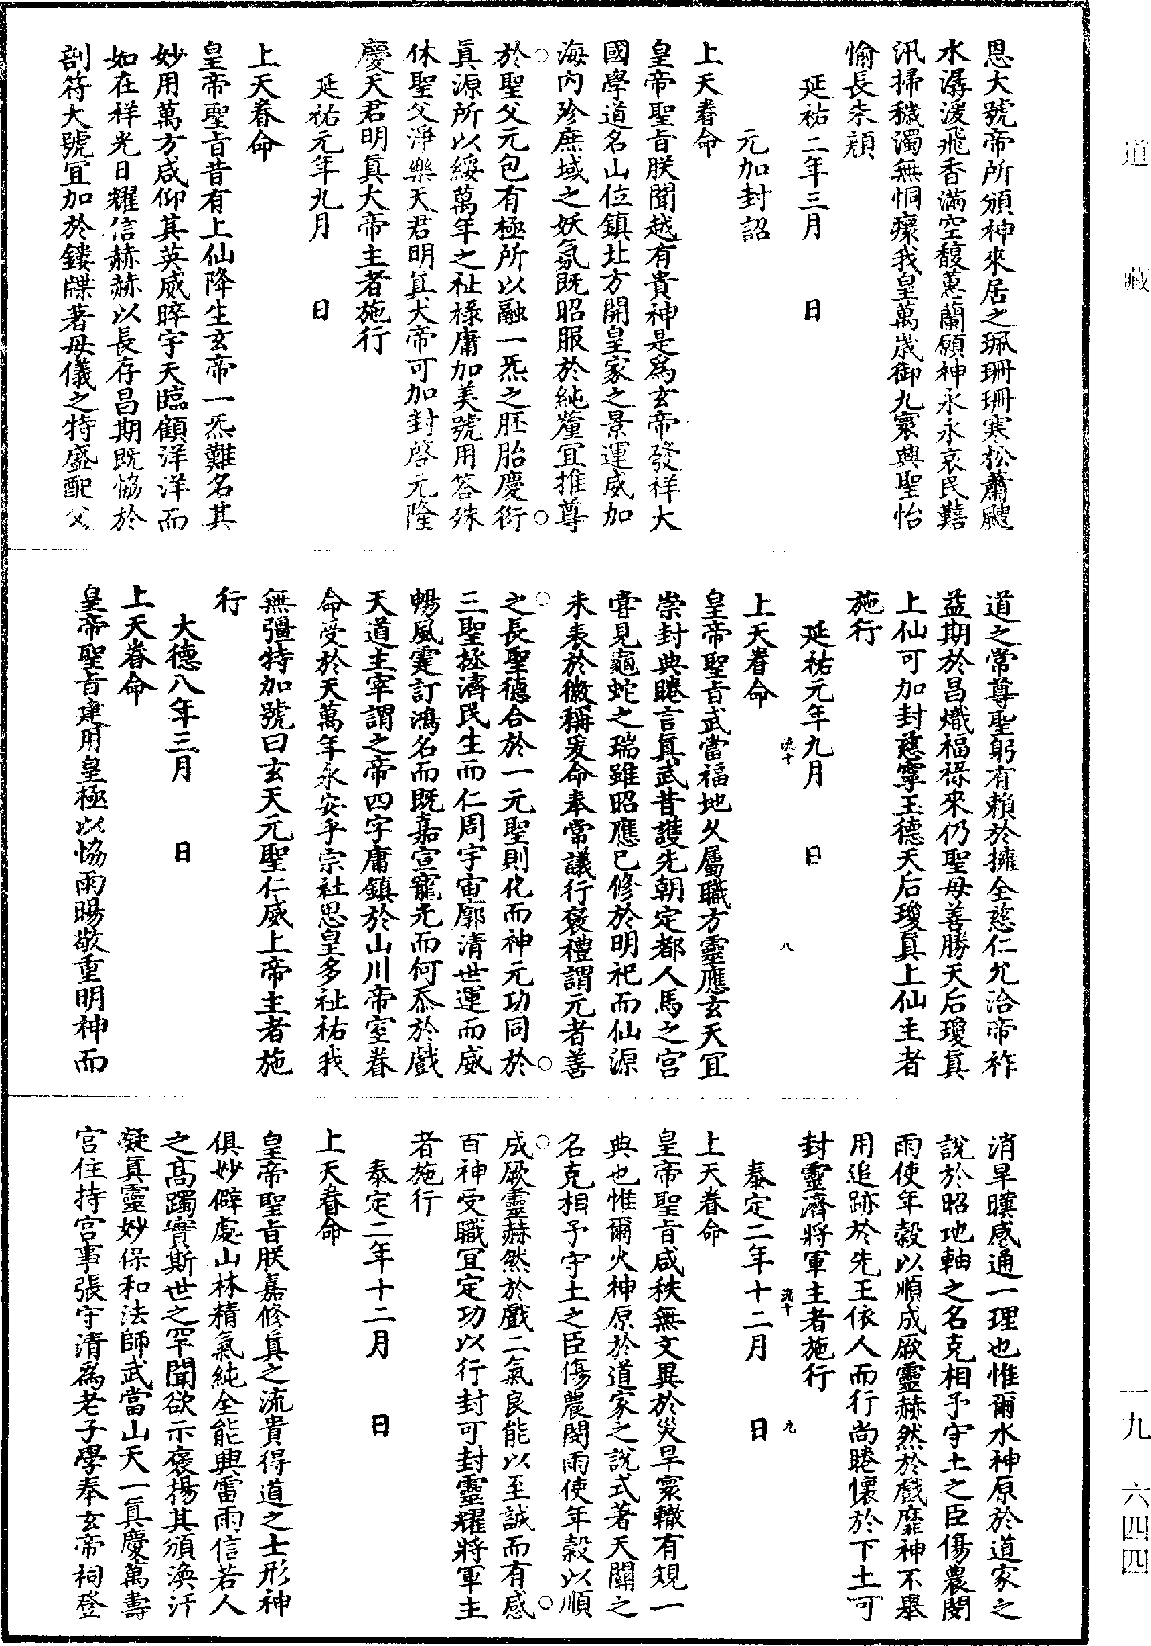 恩大號帝所頒神來居之珮珊珊寒松蕭颼
水潺湲飛香滿空馥蕙蘭願神永永哀民囏
汛掃穢濁無恫瘝我皇萬歲御九寰興聖怡
愉長朱顔
延祐二年三月　日
元加封詔
上天眷命
皇帝聖旨朕聞越有貴神是爲玄帝發祥大
國學道名山位鎮北方開皇家之景運威加
海内殄庶域之妖氛既昭服於純釐宜推尊
於聖父元包有極所以融一炁之胚胎慶衍
真源所以綏萬年之祉祿庸加美號用荅殊
休聖父淨樂天君明真大帝可加封啓元隆
慶天君明真大帝主者施行
延祐元年九月　日
上天眷命
皇帝聖旨昔有上仙降生玄帝一炁難名其
妙用萬方咸仰其英威晬宇天臨顧洋洋而
如在祥光日耀信赫赫以長存昌期既恊於
剖符大號宜加於鏤牒著母儀之特盛配父
道之常尊聖躬有賴於擁全慈仁允洽帝祚
益期於昌熾福祿來仍聖母善勝天后瓊真
上仙可加封慈寧玉德天后瓊真上仙主者
施行
延祐元年九月　日
上天眷命
皇帝聖旨武當福地久屬職方靈應玄天宜
崇封典睠言真武昔護先朝定都人馬之宮
嘗見龜蛇之瑞雖昭應已修於明祀而仙源
未表於徽稱爰命奉常議行褒禮謂元者善
之長聖德合於一元聖則化而神元功同於
三聖拯濟民生而仁周宇宙廓清世運而威
暢風霆訂鴻名而既嘉宣寵光而何忝於戲
天道主宰謂之帝四字庸鎮於山川帝室眷
命受於天萬年永安乎宗社思皇多祉祐我
無彊特加號曰玄天元聖仁威上帝主者施
行
大德八年三月　日
上天眷命
皇帝聖旨建用皇極以恊雨暘敬重明神而
消旱暵感通一理也惟爾水神原於道家之
說於昭地軸之名克相予宇土之臣傷農閔
雨使年穀以順成厥靈赫然於戲靡神不舉
用追跡於先王依人而行尚睠懷於下土可
封靈濟將軍主者施行
泰定二年十二月　日
上天眷命
皇帝聖旨咸秩無文異於災旱寔轍有規一
典也惟爾火神原於道家之說式著天關之
名克相予守土之臣傷農閔雨使年穀以順
成厥靈赫然於戲二氣良能以至誠而有感
百神受職宜定功以行封可封靈耀將軍主
者施行
泰定二年十二月　日
上天眷命
皇帝聖旨朕嘉修真之流貴得道之士形神
俱妙僻處山林精氣純全能興雷雨信若人
之高躅實斯世之罕聞欲示褒揚其頒渙汗
凝真靈妙保和法師武當山天一真慶萬壽
宫住持宫事張守清爲老子學奉玄帝祠登
道藏
一九　六四四